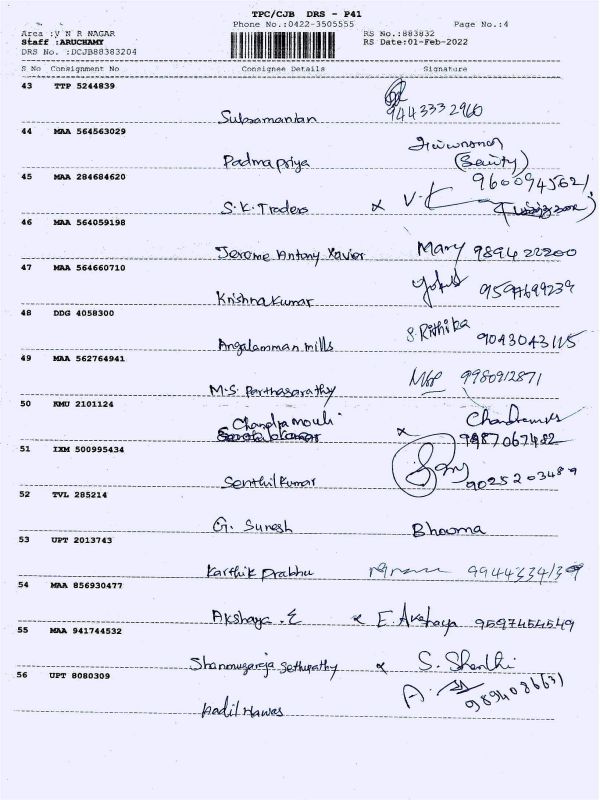 TPC/CJB DRS - P41
Phone No.:0422-3505555 Page No.:4
Area :V N R NAGAR RS No.:883832
Staff :ARUCHAMY RS Date:01-Feb-2022
DRS No. :DCJB88383204
S No Consignment No Consignee Details Signature
43 TTP 5244839
Subramanian 9443332960
44 MAA 564563029
Padmapriya (Security)
45 MAA 284684620
S.K. Traders x V.K 9600945621
46 MAA 564059198
Jerome Antony Xavier Mary 9894222200
47 MAA 564660710
Krishnakumar
48 DDG 4058300
Angalamman mills S. Rithika 9043043115
49 MAA 562764941
M.S. Parthasarathy MSP 9980912871
50 KMU 2101124
Chandramouli x 9487067482
51 IXM 500995434
Senthilkumar 9025203489
52 TVL 285214
G. Suresh Bhavma
53 UPT 2013743
Karthik Prabhu
54 MAA 856930477
Akshaya .E x E. Akshaya 9597454549
55 MAA 941744532
Shanmugaraja Sethupathy x S. Shanthi
56 UPT 8080309
Aadil Hawas 9894086631